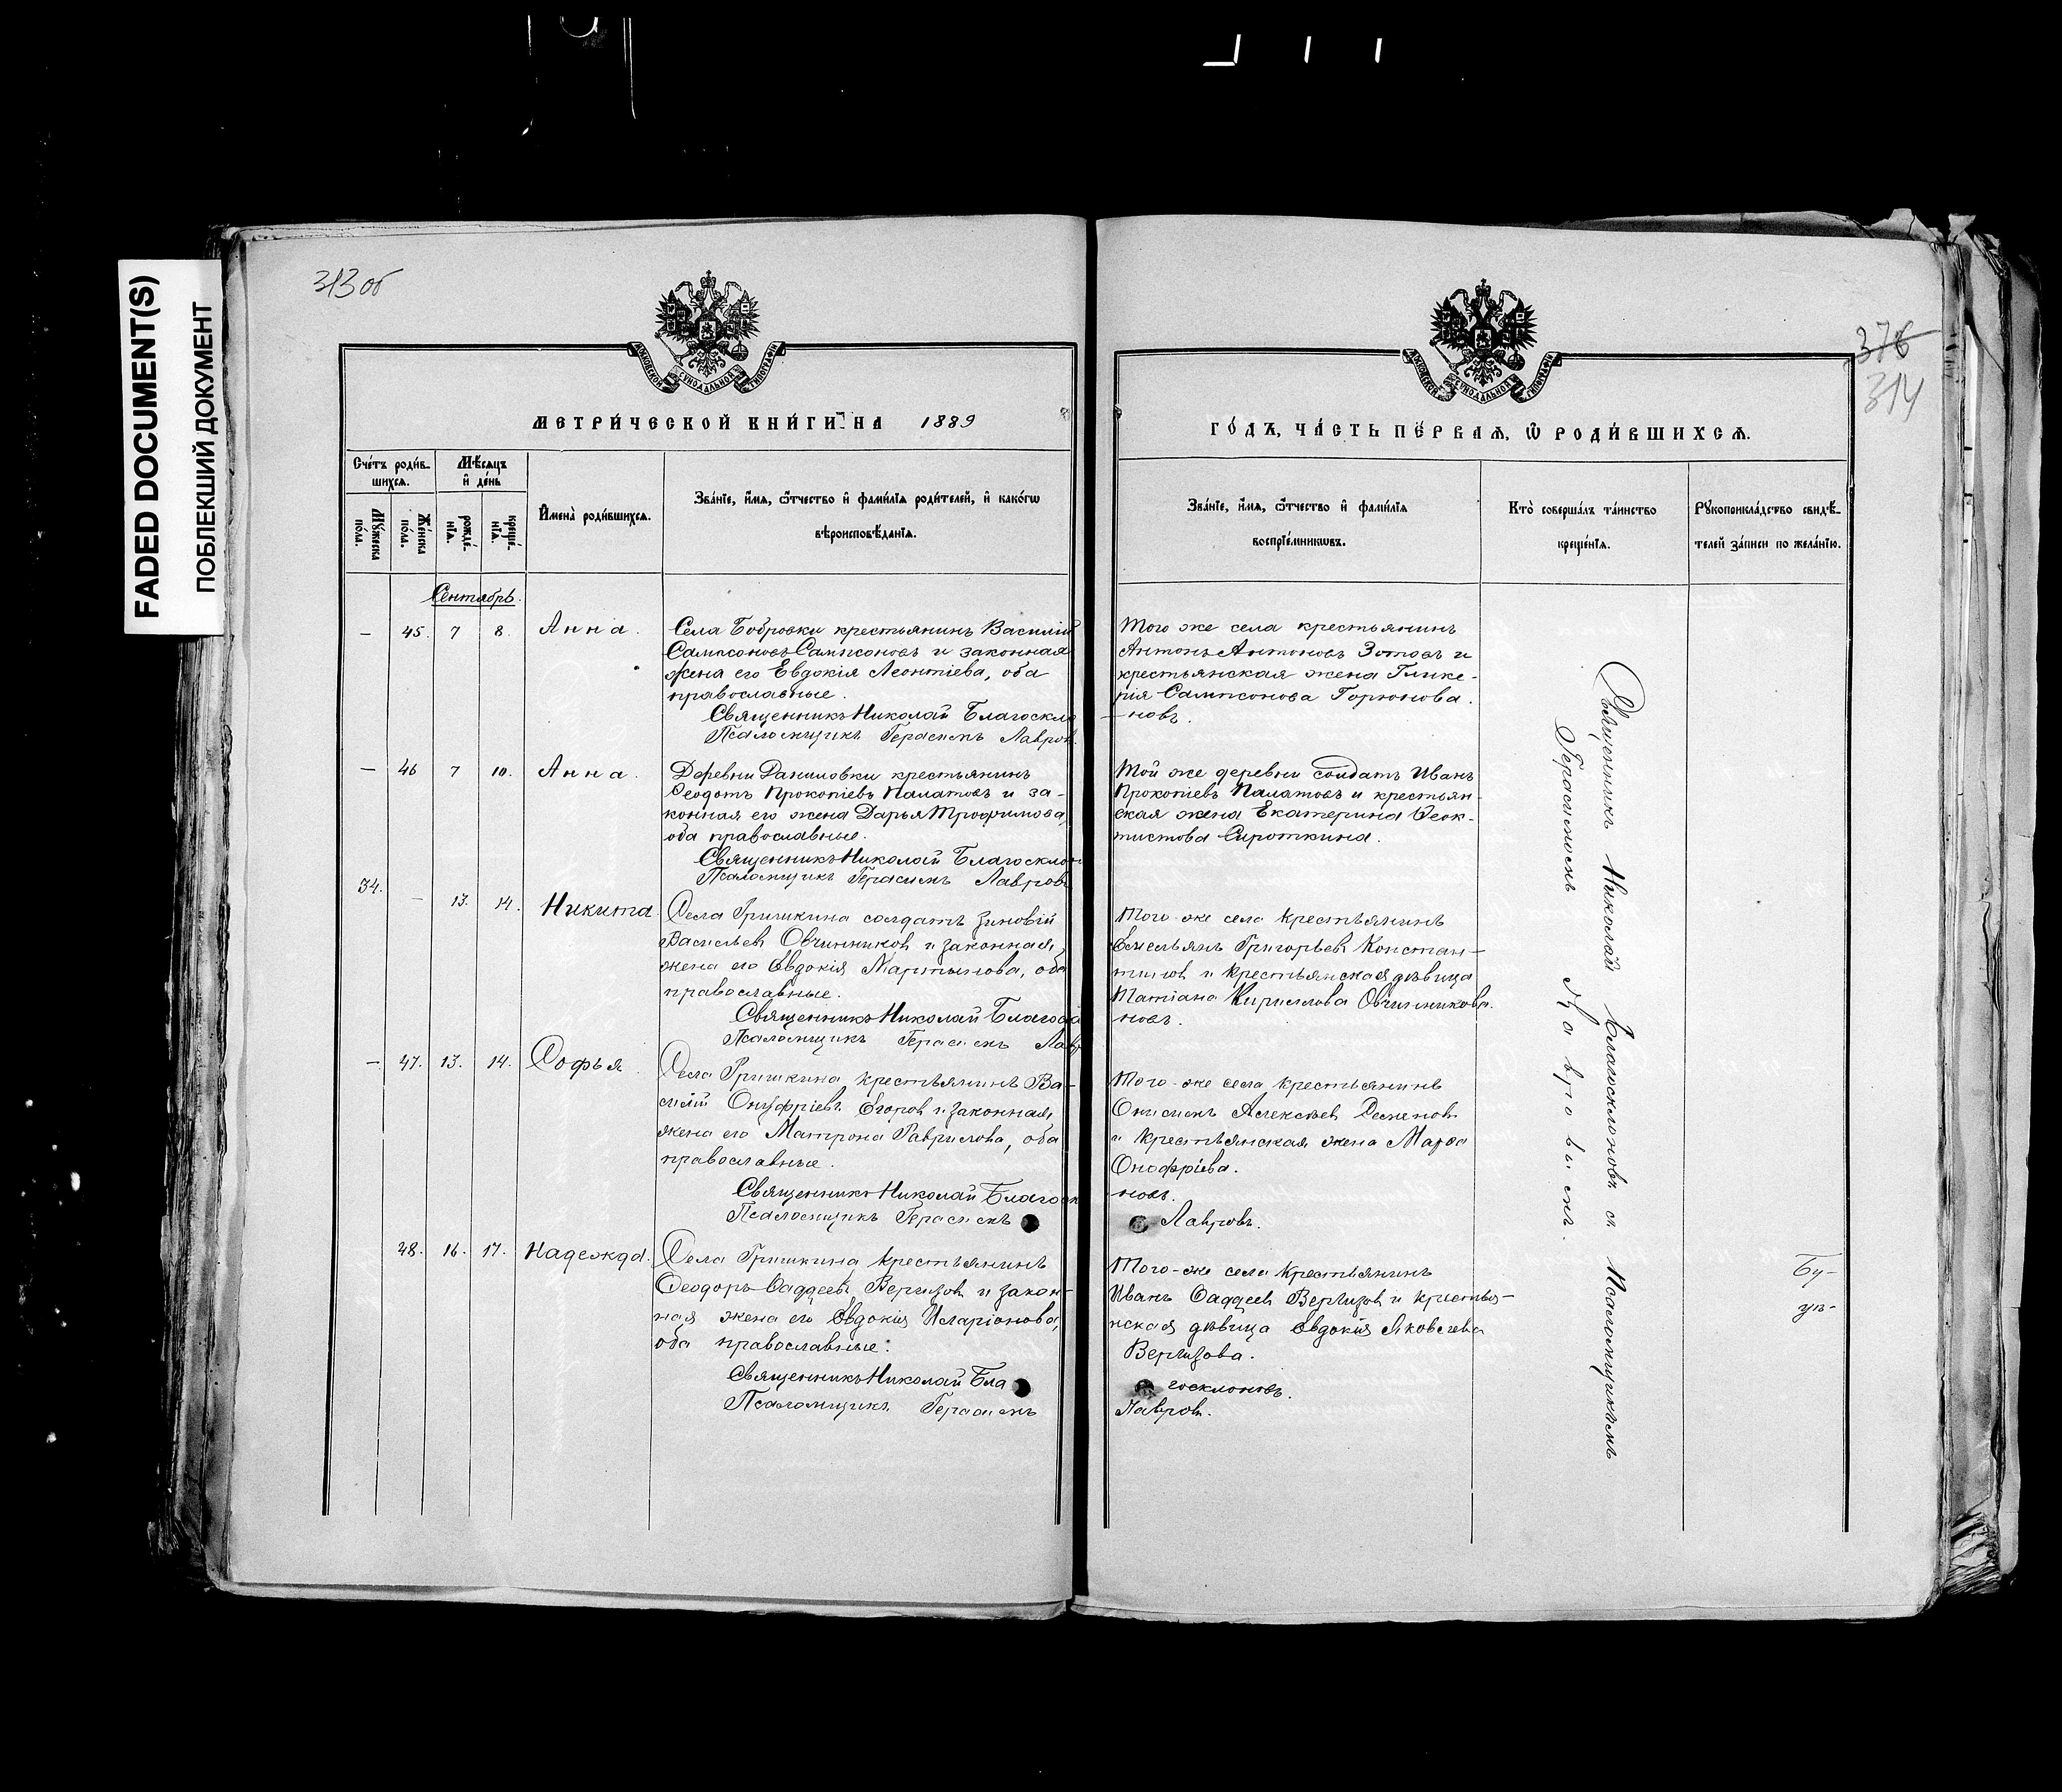 FADED DOCUMENT(S)
ПОБЛЕКШИЙ ДОКУМЕНТ
313 об
МОСКОВСКОЙ СѴНОДАЛЬНОЙ ТИПОГРАФІИ
МЕТРИ́ЧЕСКОЙ КНИ́ГИ НА 1889
Сче́тъ роди́в-
шихсѧ.
Мѣ́сѧцъ
и҆ де́нь
Мꙋ́жеска
пола.
Же́нска
по́ла.
рожде́-
нїѧ.
креще́-
нїѧ.
И҆мена̀ роди́вшихсѧ.
Зва́нїе, и҆́мѧ, ѻ҆́тчество и҆ фами́лїѧ роди́телей, и҆ како́гѡ
вѣроисповѣ́данїѧ.
Сентябрь.
— 45. 7 8. Анна.
Села Бобровки крестьянинъ Василій
Сампсоновъ Сампсоновъ и законная
жена его Евдокія Леонтіева, оба
православные.
Священникъ Николай Благоскло
Псаломщикъ Герасимъ Лавров.
— 46 7 10. Анна.
Деревни Даниловки крестьянинъ
Ѳеодотъ Прокопіевъ Палатовъ и за-
конная его жена Дарья Трофимова,
оба православные.
Священникъ Николай Благосклон
Псаломщикъ Герасимъ Лавровъ
34. — 13. 14. Никита.
Села Гришкина солдатъ Зиновій
Васильевъ Овчинниковъ и законная
жена его Евдокія Мартынова, оба
православные.
Священникъ Николай Благоск
Псаломщикъ Герасимъ Лавр
— 47. 13. 14. Софья
Села Гришкина крестьянинъ Ва-
силій Онуфріевъ Егоровъ и законная
жена его Матрона Гаврилова, оба
православные.
Священникъ Николай Благоск
Псаломщикъ Герасимъ
48. 16. 17. Надежда.
Села Гришкина крестьянинъ
Ѳеодоръ Ѳаддеевъ Вергизовъ и закон-
ная жена его Евдокія Иларіонова,
оба православные.
Священникъ Николай Бла
Псаломщикъ Герасимъ
376
314
МОСКОВСКОЙ СѴНОДАЛЬНОЙ ТИПОГРАФІИ
ГО́ДЪ, ЧА́СТЬ ПЕ́РВАѦ, Ѽ РОДИ́ВШИХСѦ.
Зва́нїе, и҆́мѧ, ѻ҆́тчество и҆ фами́лїѧ
воспрїе́мникѡвъ.
Кто̀ соверша́лъ та́инство
креще́нїѧ.
Рꙋкоприкла́дство свидѣ́-
телей за́писи по жела́нїю.
Того же села крестьянинъ
Антонъ Антоновъ Зотовъ и
крестьянская жена Глике-
рія Сампсонова Горюнова.
-новъ.
Той же деревни солдатъ Иванъ
Прокопіевъ Палатовъ и крестьян-
ская жена Екатерина Ѳеок-
тистова Сироткина.
Того-же села крестьянинъ
Емельянъ Григорьевъ Констан-
тиновъ и крестьянская дѣвица
Матіана Кирилова Овчинникова.
новъ.
Того-же села крестьянинъ
Онисимъ Алексѣевъ Семеновъ
и крестьянская жена Марѳа
Онофріева.
новъ.
Лавровъ.
Того-же села крестьянинъ
Иванъ Ѳаддеевъ Вергизовъ и крестья-
нская дѣвица Евдокія Яковлева
Вергизова.
госклоновъ.
Лавровъ.
Священникъ Николай Благосклоновъ съ Псаломщикомъ
Герасимомъ Лавровымъ.
Бу-